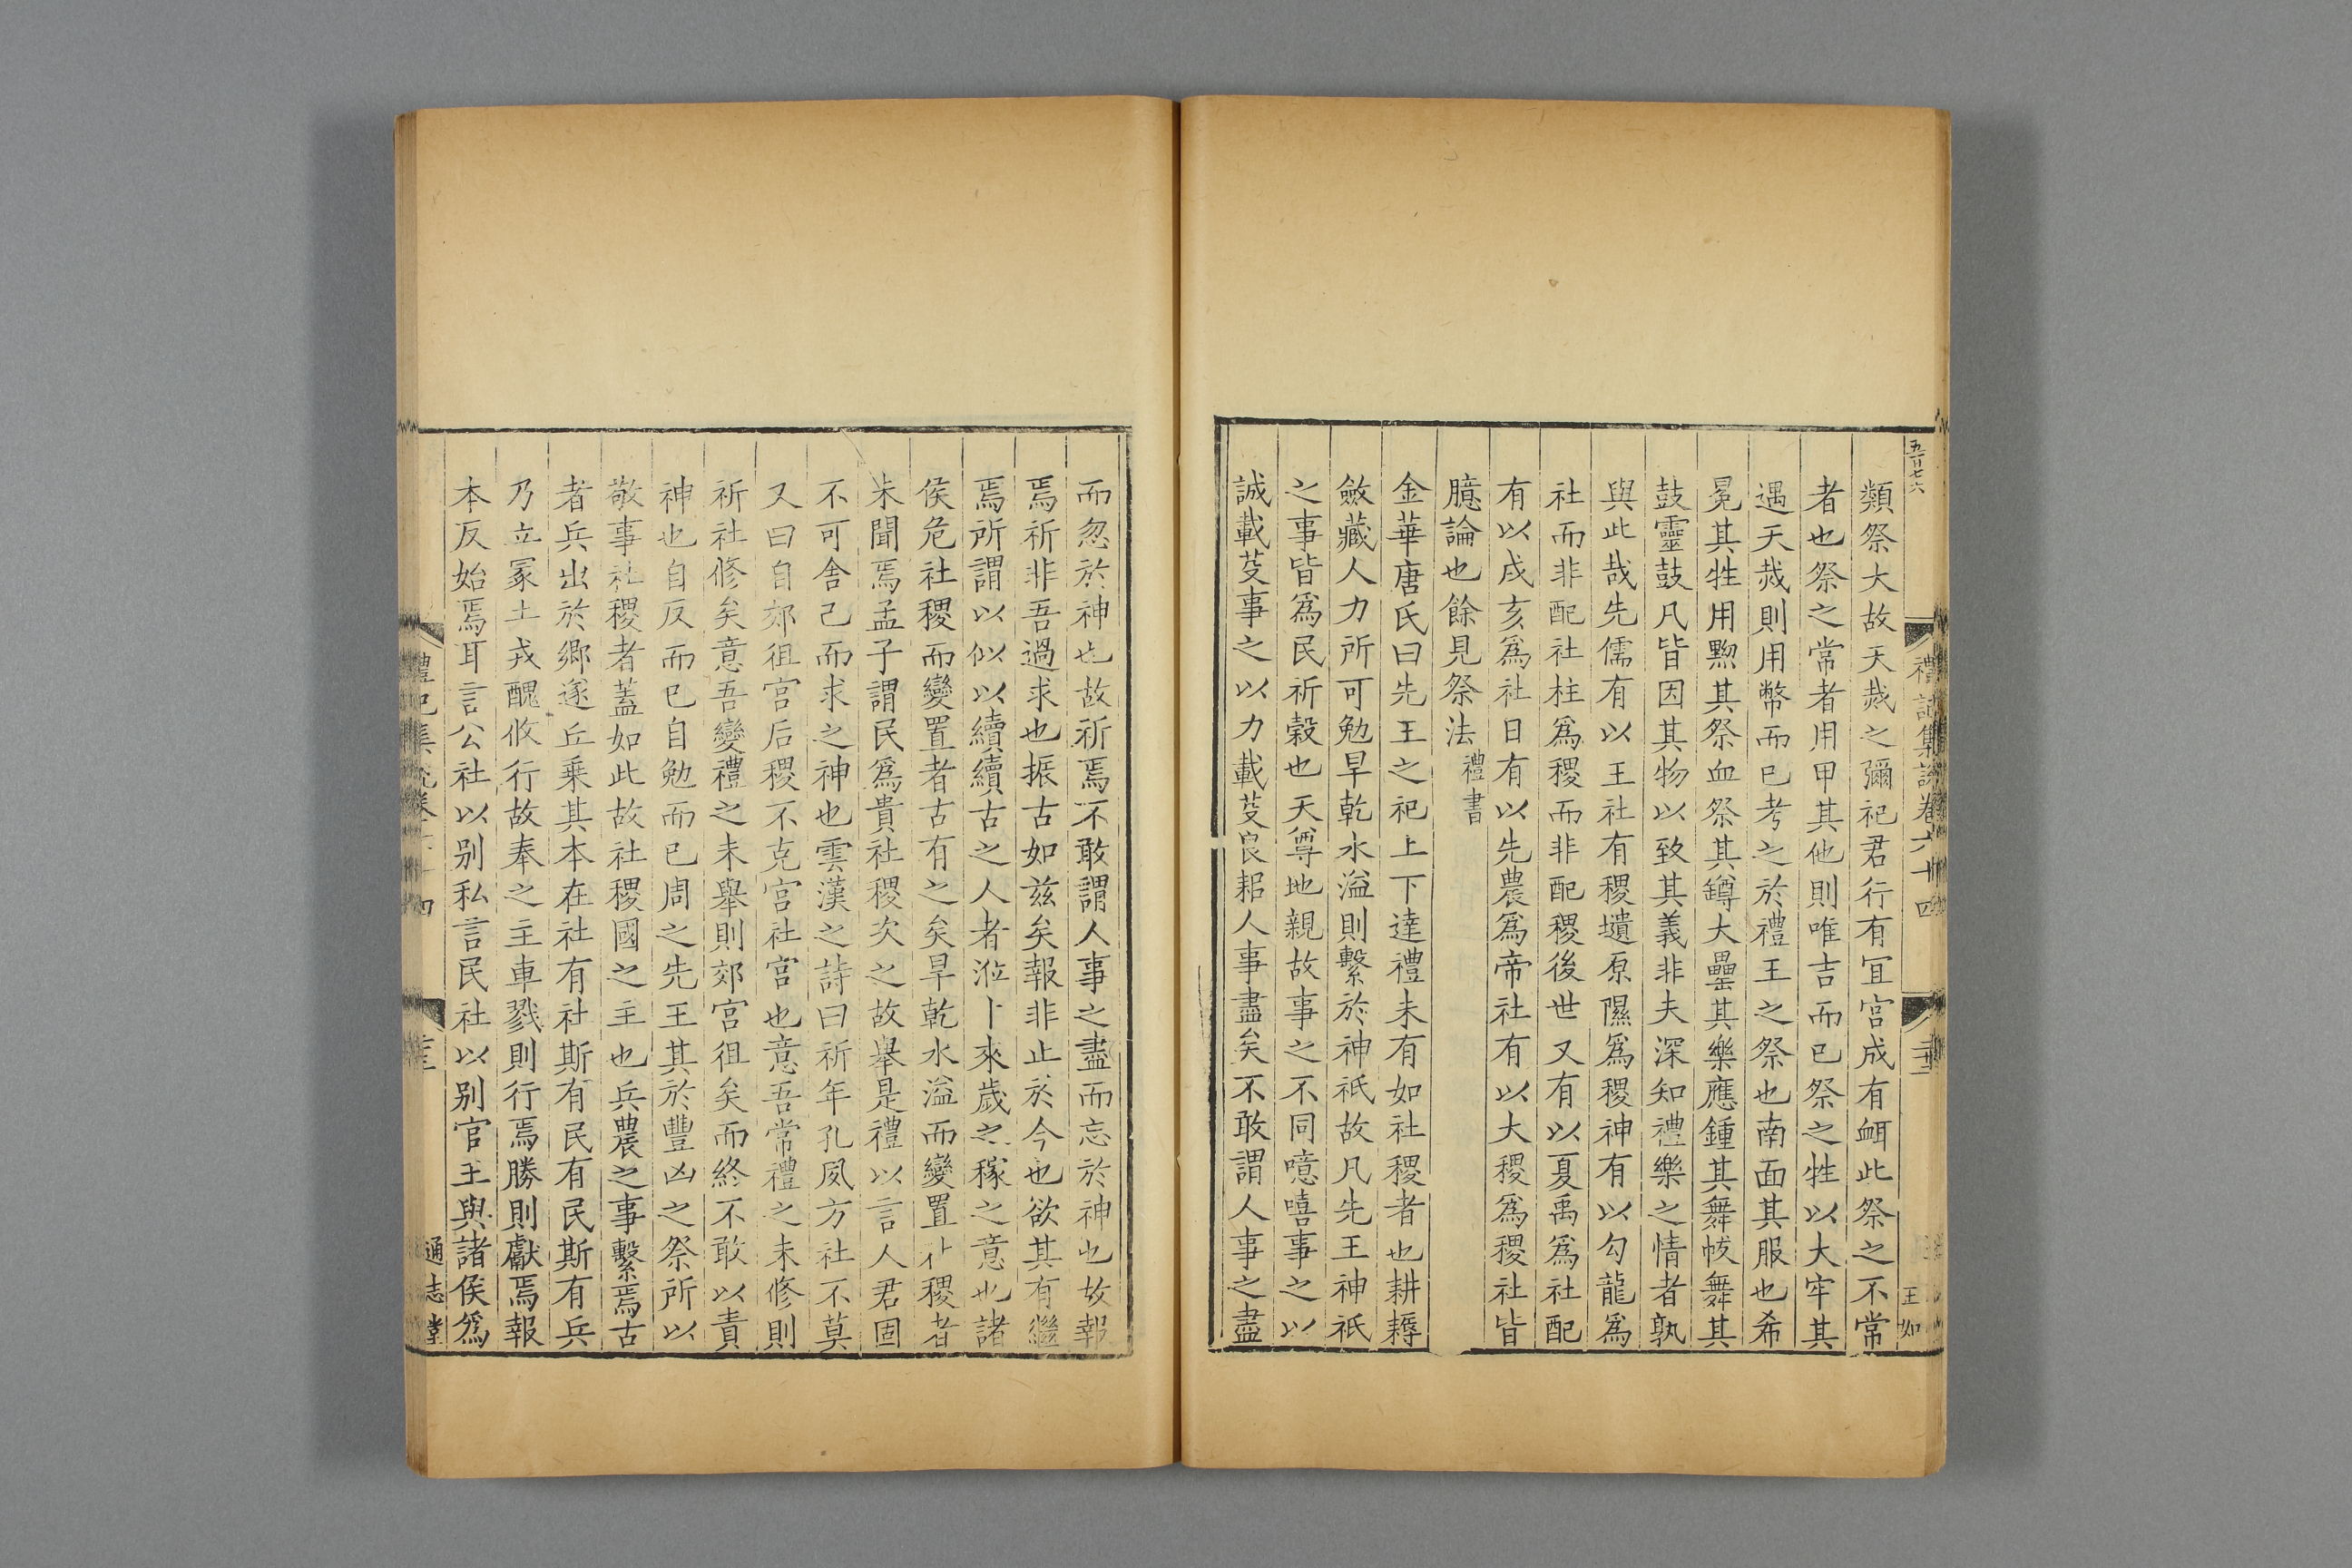 五百七六
禮記集說卷六十四
王如
類祭大故天烖之彌祀君行有宜宮成有衈此祭之不常
者也祭之常者用甲其他則唯吉而已祭之牲以大牢其
遇天烖則用幣而已考之於禮王之祭也南面其服也希
冕其牲用黝其祭血祭其罇大罍其樂應鍾其舞帗舞其
鼓靈鼓凡皆因其物以致其義非夫深知禮樂之情者孰
與此哉先儒有以王社有稷壝原隰爲稷神有以勾龍爲
社而非配社柱爲稷而非配稷後世又有以夏禹爲社配
有以戌亥爲社日有以先農爲帝社有以大稷爲稷社皆
臆論也餘見祭法禮書
金華唐氏曰先王之祀上下達禮未有如社稷者也耕耨
斂藏人力所可勉旱乾水溢則繫於神祇故凡先王神祇
之事皆爲民祈穀也天尊地親故事之不同噫嘻事之以
誠載芟事之以力載芟良耜人事盡矣不敢謂人事之盡
而忽於神也故祈焉不敢謂人事之盡而忘於神也故報
焉祈非吾過求也振古如兹矣報非止於今也欲其有繼
焉所謂以似以續續古之人者涖卜來歲之稼之意也諸
侯危社稷而變置者古有之矣旱乾水溢而變置社稷者
未聞焉孟子謂民爲貴社稷次之故舉是禮以言人君固
不可舍己而求之神也雲漢之詩曰祈年孔夙方社不莫
又曰自郊徂宮后稷不克宮社宮也意吾常禮之未修則
祈社修矣意吾變禮之未舉則郊宮徂矣而終不敢以責
神也自反而已自勉而已周之先王其於豐凶之祭所以
敬事社稷者蓋如此故社稷國之主也兵農之事繫焉古
者兵出於鄉遂丘乘其本在社有社斯有民有民斯有兵
乃立冢土戎醜攸行故奉之主車戮則行焉勝則獻焉報
本反始焉耳言公社以别私言民社以别官王與諸侯爲
禮記集說卷六十四
通志堂